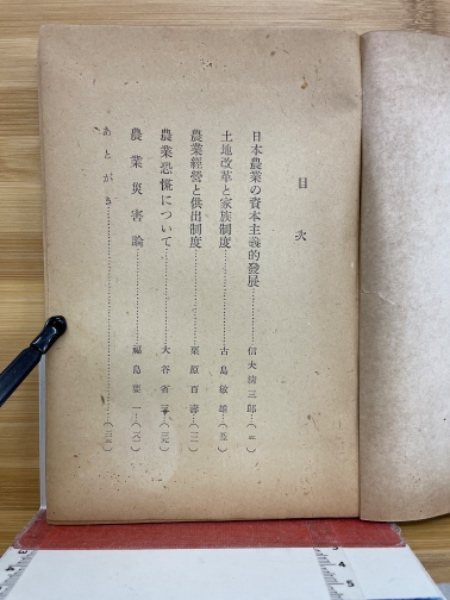 目次
日本農業の資本主義的發展……………信夫淸三郎…
土地改革と家族制度……………古島敏雄…
農業經營と供出制度……………栗原百壽…
農業恐慌について……………大谷省三…
農業災害論……………福島要一…
あとがき……………